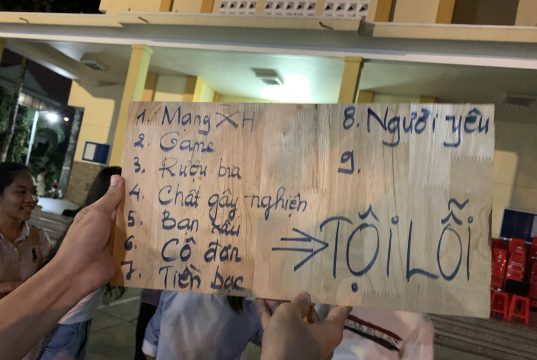 1. Mạng XH
2. Game
3. Rượu bia
4. Chất gây nghiện
5. Bạn xấu
6. Cô đơn
7. Tiền bạc
8. Người yêu
9.
⇒ TỘI LỖI